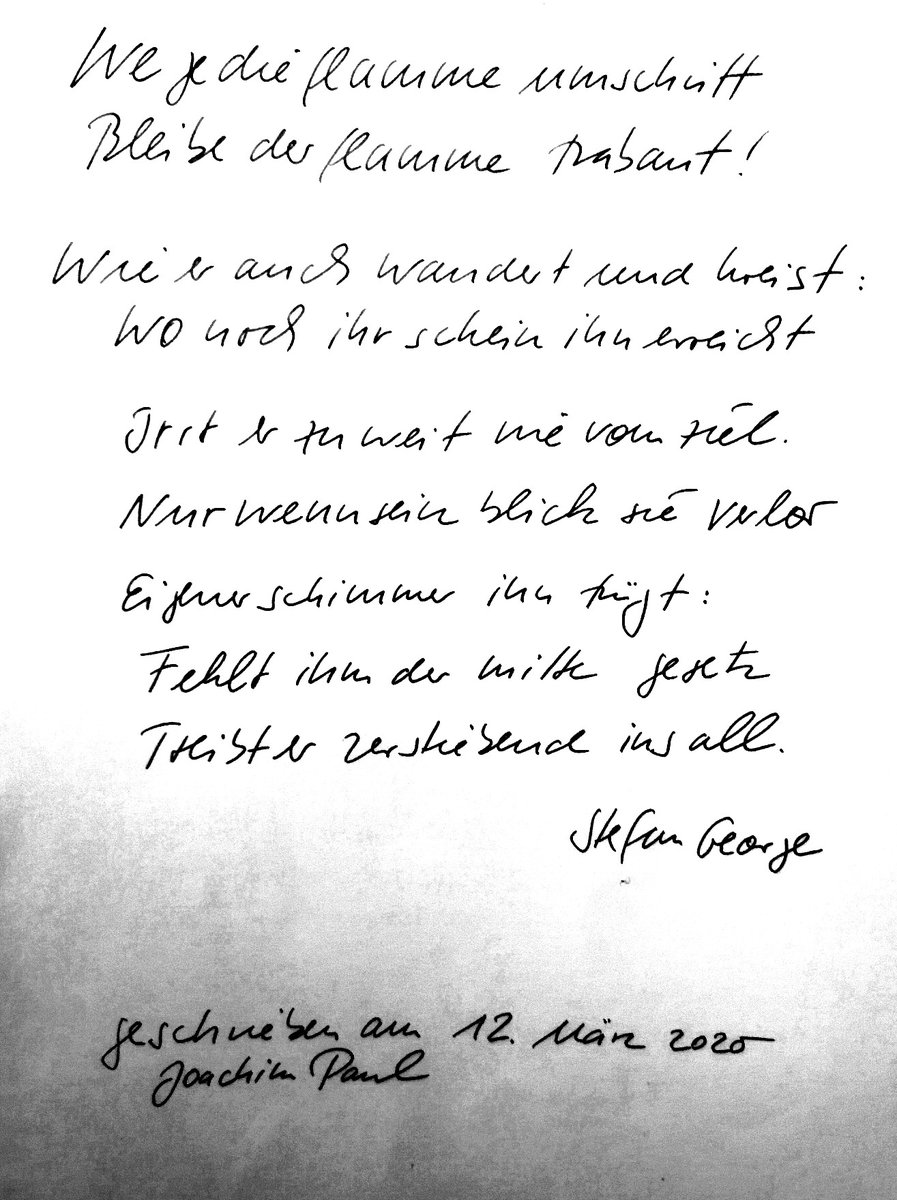 Wer je die flamme umschritt
Bleibe der flamme trabant!
Wie er auch wandert und kreist:
Wo noch ihr schein ihn erreicht
Irrt er zu weit nie vom ziel.
Nur wenn sein blick sie verlor
Eigener schimmer ihn trügt:
Fehlt ihm der mitte gesetz
Treibt er zerstiebend ins all.
Stefan George
geschrieben am 12. März 2025
Joachim Paul